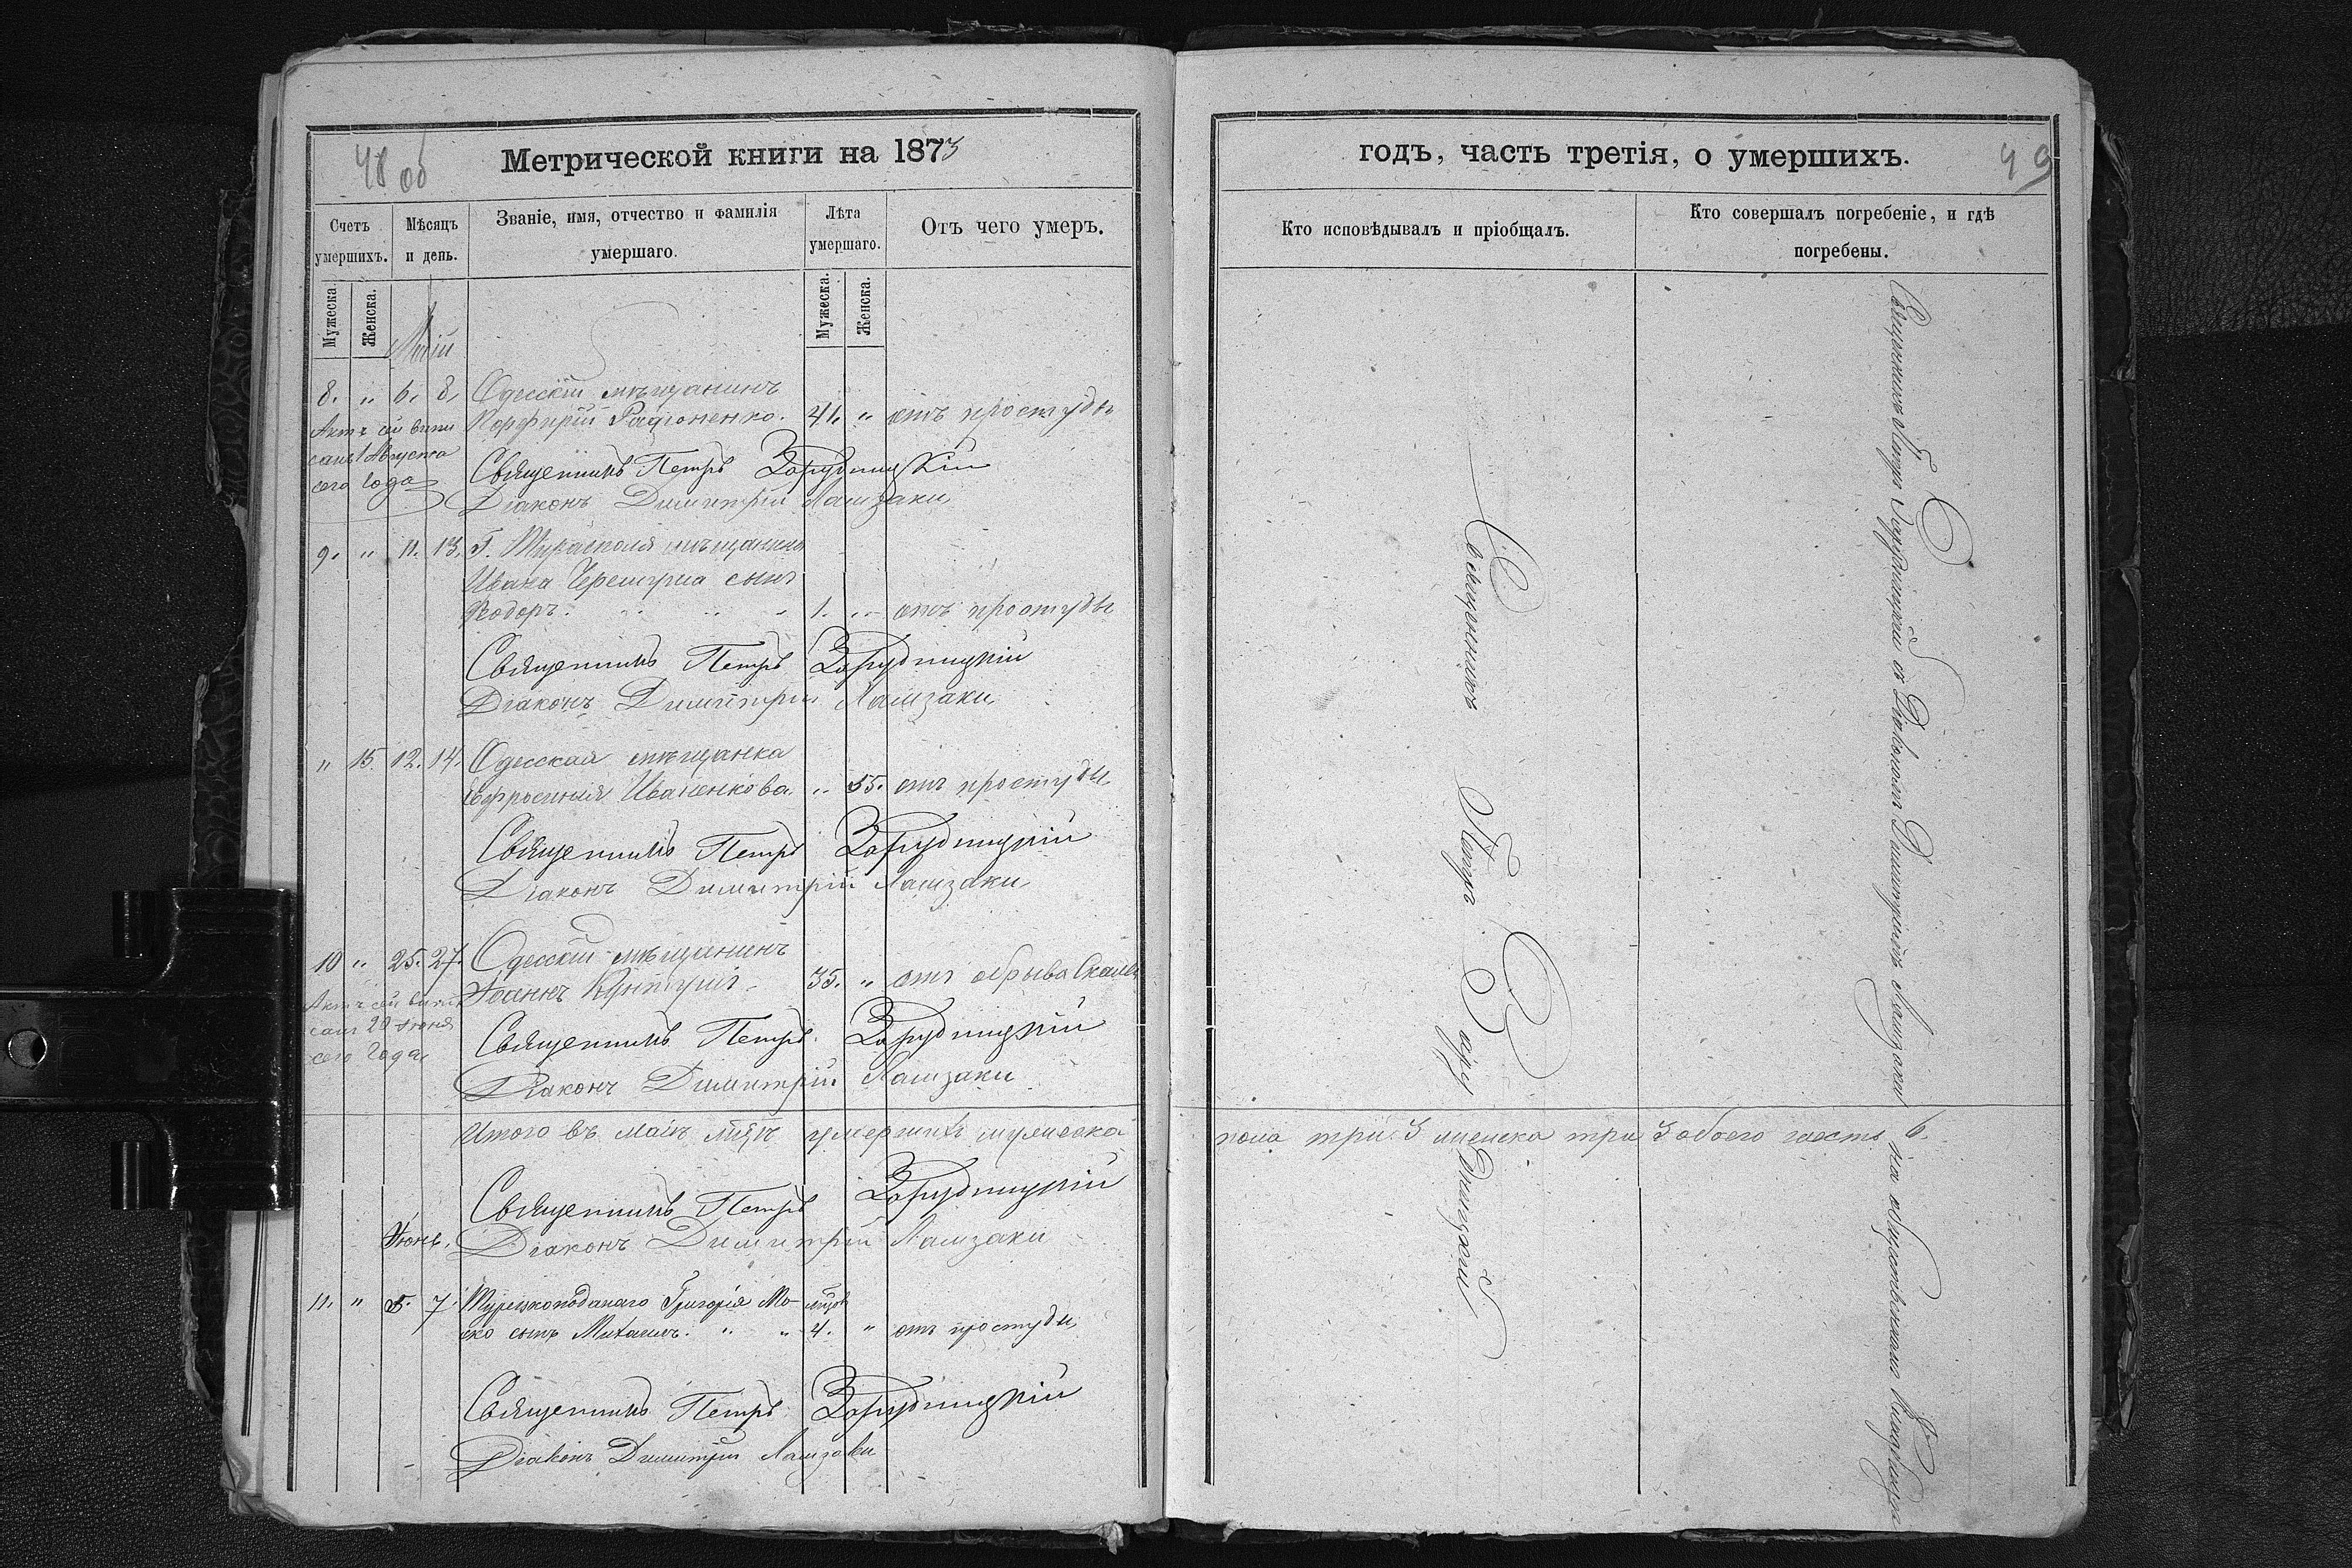 48 об
Метрической книги на 1873
Счетъ умершихъ.
Мѣсяцъ и день.
Званіе, имя, отчество и фамилія умершаго.
Лѣта умершаго.
Отъ чего умеръ.
Мужеска.
Женска.
Мужеска.
Женска.
Май
8. " 6. 8. Одесскій мѣщанинъ
Порфирій Радіоненко. 41. " отъ простуды
Актъ сей выпи
санъ 1 Августа
сего года
Священникъ Петръ Зарудницкій
Діаконъ Димитрій Ламзаки
9. " 11. 13. Г. Тирасполя мѣщанина
Ивана сынъ
Ѳеодоръ. " " " 1. " отъ простуды
Священникъ Петръ Зарудницкій
Діаконъ Димитрій Ламзаки
" 15. 12. 14. Одесская мѣщанка
Евфросинія Иваненкова. " 55. отъ простуды
Священникъ Петръ Зарудницкій
Діаконъ Димитрій Ламзаки
10 " 25. 27. Одесскій мѣщанинъ
Іоаннъ 35. " отъ обрыва скалы
Актъ сей выпи
санъ 20 Іюня
сего года
Священникъ Петръ Зарудницкій
Діаконъ Димитрій Ламзаки
Итого въ маѣ мцѣ умершихъ мужеска
Священникъ Петръ Зарудницкій
Діаконъ Димитрій Ламзаки
Іюнь.
11. " 5. 7. Турецкоподанаго Григорія Мо- мцов
ско сынъ Михаилъ. " " 4. " отъ простуды
Священникъ Петръ Зарудницкій
Діаконъ Димитрій Ламзаки
годъ, часть третія, о умершихъ.
49
Кто исповѣдывалъ и пріобщалъ.
Кто совершалъ погребеніе, и гдѣ погребены.
Священникъ Петръ Зарудницкій
Священникъ Петръ Зарудницкій съ Діакономъ Димитріемъ Ламзаки на общественномъ кладбищѣ
пола три 3 женска три 3 обоего шесть 6.